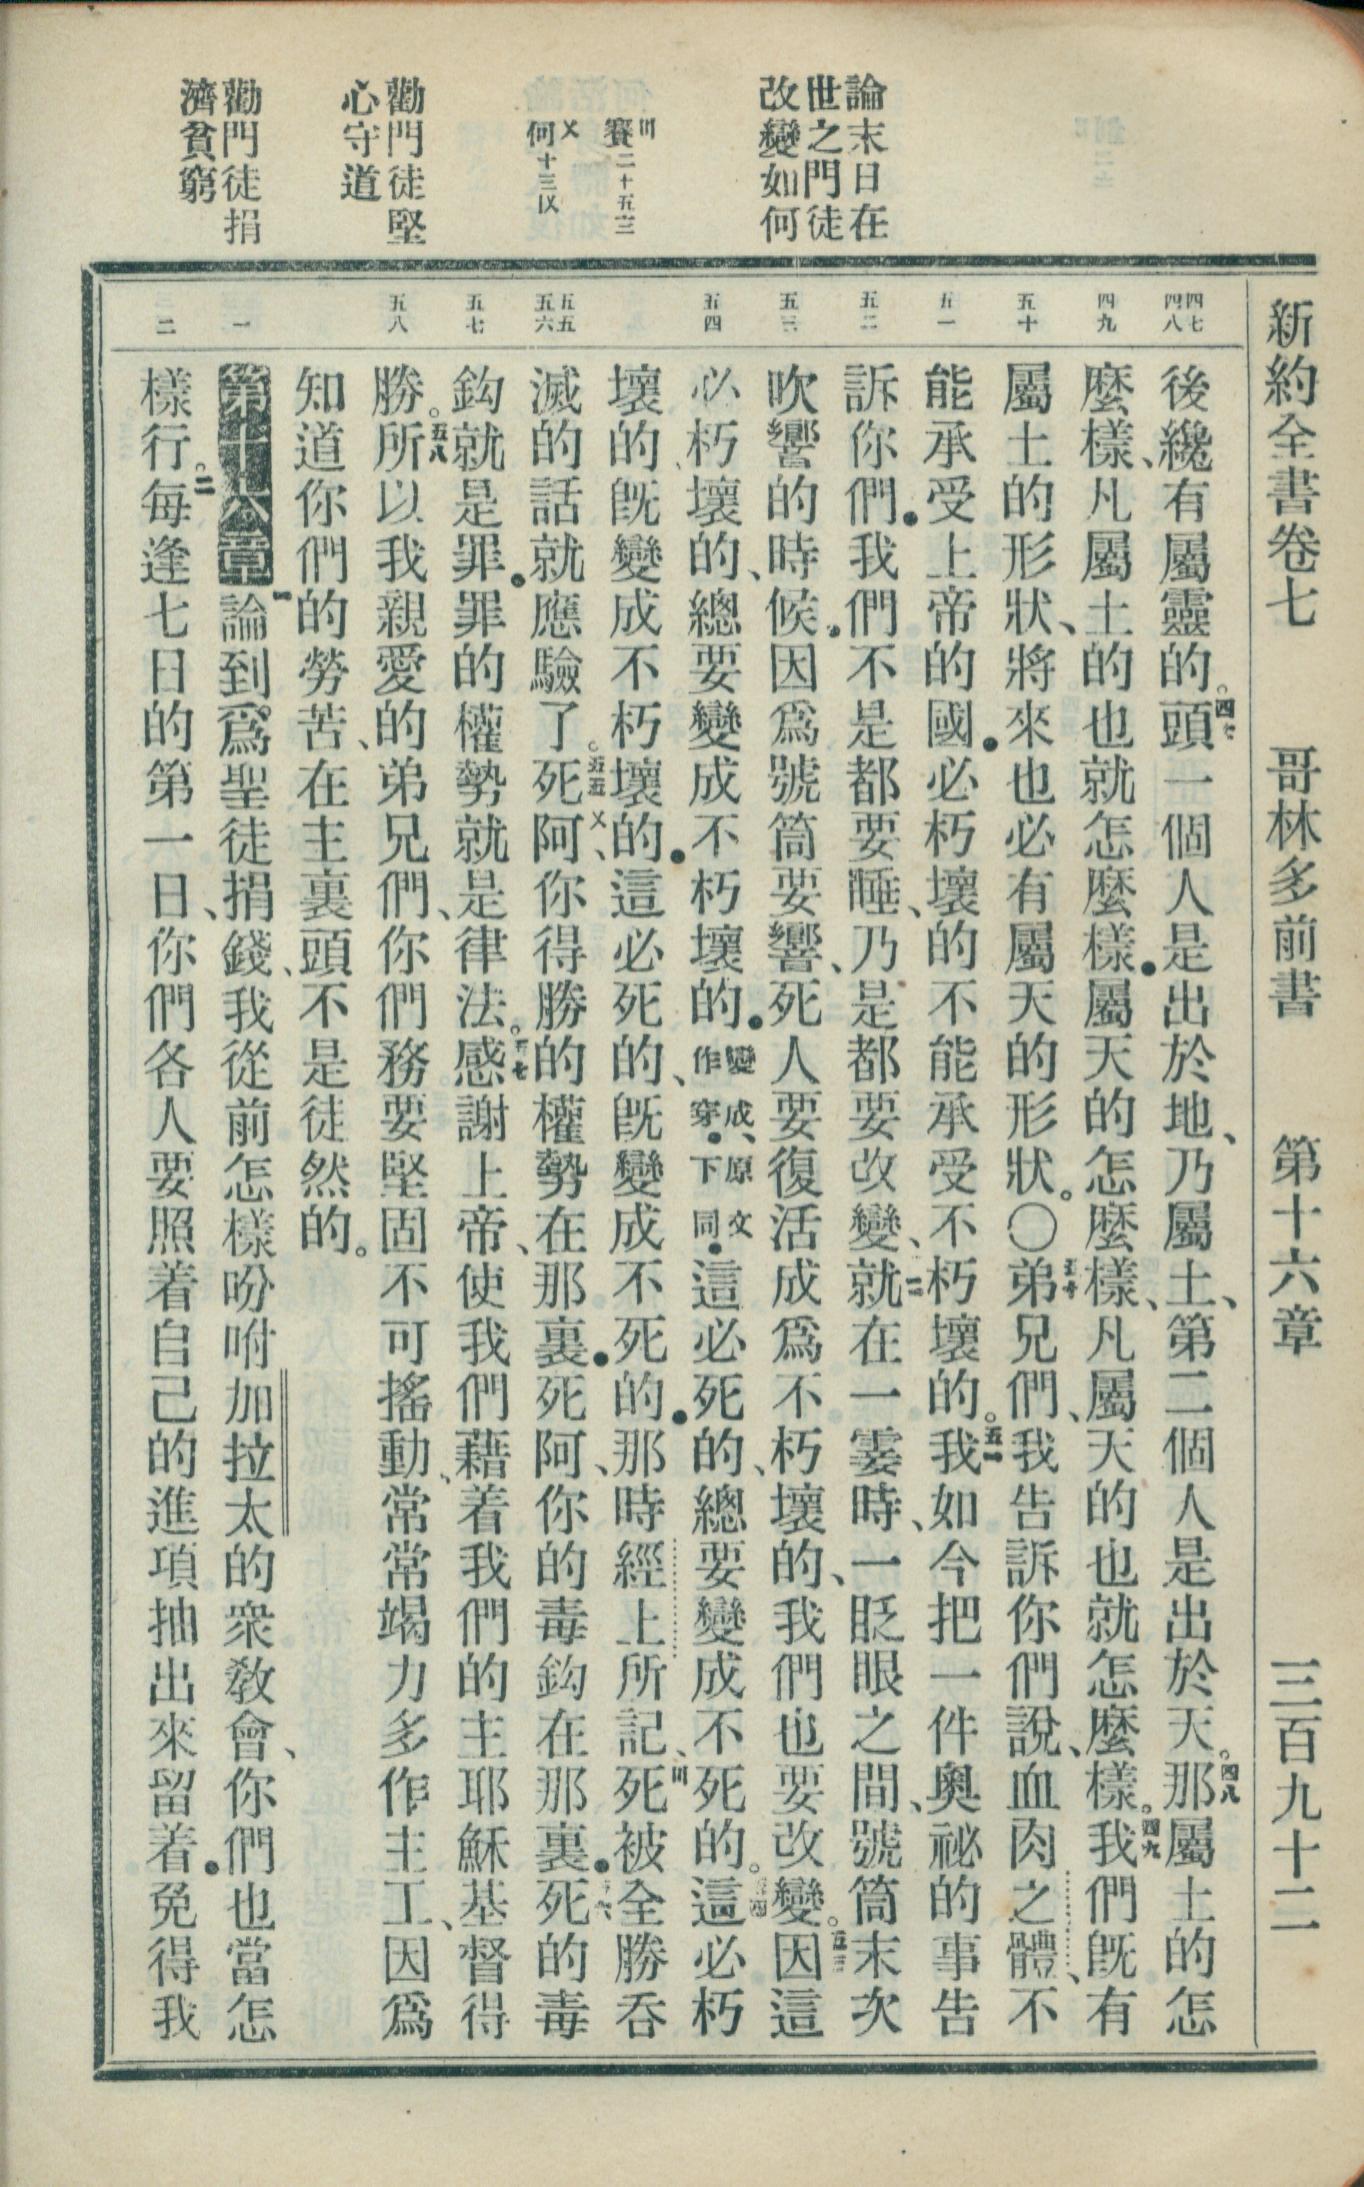 新約全書卷七 哥林多前書 第十六章 三百九十二
論末日在
世之門徒
改變如何
賽二十五
何十三
勸門徒堅
心守道
勸門徒捐
濟貧窮
四七 四八 四九 五十 五一 五二 五三 五四 五五 五六 五七 五八 一 二
後纔有屬靈的。四七頭一個人是出於地、乃屬土、第二個人是出於天。四八那屬土的怎
麼樣、凡屬土的也就怎麼樣．屬天的怎麼樣、凡屬天的也就怎麼樣。四九我們旣有
屬土的形狀、將來也必有屬天的形狀。〇五十弟兄們、我告訴你們說、血肉之體、不
能承受上帝的國．必朽壞的不能承受不朽壞的。五一我如今把一件奧祕的事告
訴你們．我們不是都要睡、乃是都要改變、五二就在一霎時、一眨眼之間、號筒末次
吹響的時候．因爲號筒要響、死人要復活成爲不朽壞的、我們也要改變。五三因這
必朽壞的、總要變成不朽壞的．變成、原文作穿．下同．這必死的、總要變成不死的。五四這必朽
壞的旣變成不朽壞的．這必死的、旣變成不死的．那時經上所記、死被全勝呑
滅的話就應驗了。五五死阿、你得勝的權勢在那裏．死阿、你的毒鈎在那裏．五六死的毒
鈎就是罪．罪的權勢就是律法。五七感謝上帝、使我們藉着我們的主耶穌基督得
勝。五八所以我親愛的弟兄們、你們務要堅固不可搖動、常常竭力多作主工、因爲
知道你們的勞苦、在主裏頭不是徒然的。
第十六章 一論到爲聖徒捐錢、我從前怎樣吩咐加拉太的衆敎會、你們也當怎
樣行。二每逢七日的第一日、你們各人要照着自己的進項抽出來留着．免得我